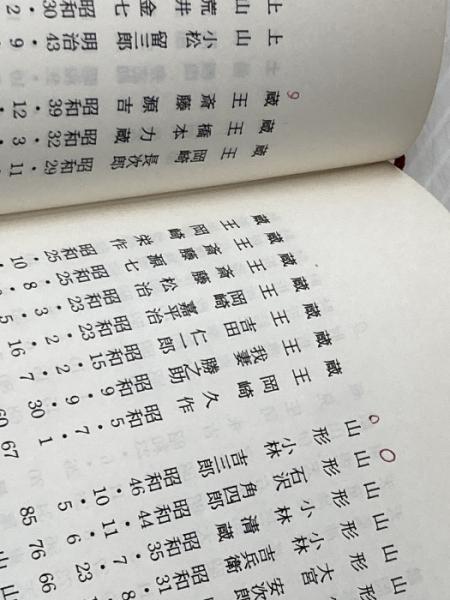 山形 大宮安次郎
山形 小林吉兵衛 昭和31・8・ 66
山形 小林清蔵 昭和35・7・23 76
山形 石沢角四郎 昭和44・11・6 85
山形 小林吉三郎 昭和46・10・5
蔵王 岡崎久作 昭和5・7・1 67
蔵王 我妻勝之助 昭和9・7・30 60
蔵王 吉田仁一郎 昭和15・2・7
蔵王 岡崎嘉平治 昭和23・2・16
蔵王 斎藤松治 昭和23・3・5
蔵王 斎藤源七 昭和25・8・
蔵王 岡崎栄作 昭和25・10・
蔵王 岡崎長次郎 昭和29・11
蔵王 橋本力蔵 昭和32・3・
蔵王 斎藤源吉 昭和39・12・
上山 小松留三郎 明治43・9・
上山 荒井金七 昭和30・2